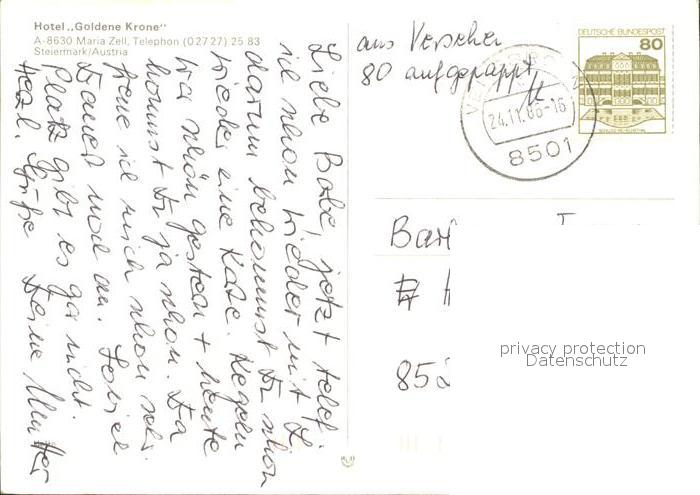 Hotel „Goldene Krone“
A-8630 Maria Zell, Telephon (02727) 25 83
Steiermark/Austria
Liebe Babe, jetzt telef.
ich schon wieder mit Dir
darum bekommst Du schon
wieder eine Karte. Kegeln
war schön gestern + heute
kommst Du ja schon. Da
freue ich mich schon sehr
drauf und an. Soviel
Platz gibt es gar nicht.
Herzl. Grüße Deine Mutter
aus Versehen
80 aufgepappt
DEUTSCHE BUNDESPOST
80
24.11.86-16
8501
Bar
852
privacy protection
Datenschutz